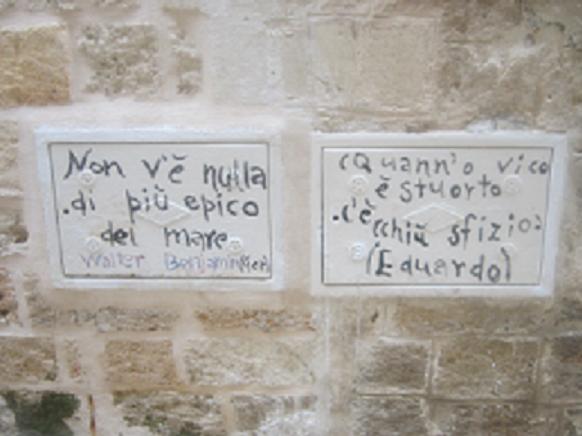 Non v'ĕ nulla
.di più epico
del mare
Walter Benjamin
(Quann'o vico
ĕ stuorto
.c'ĕ cchiŭ sfizio:
(Eduardo)